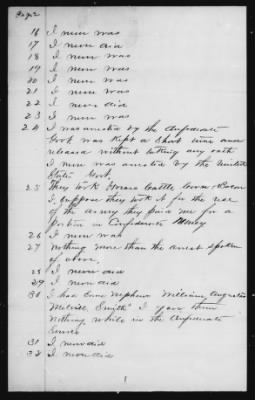 Page 2
16 I never was
17 I never did
18 I never was
19 I never was
20 I never was
21 I never was
22 I never did
23 I never was
24 I was arrested by the Confederate
Govt. was kept a short time and
released without taking any oath
I never was arrested by the United
States Govt.
25 They took Horses Cattle Corn & Bacon
I suppose they took it for the use
of the army they paid me for a
portion in Confederate Money
26 I never was
27 Nothing more than the arrest spoken
of above.
28 I never did
29 I never did
30 I had one nephew William
Smith I gave him
nothing while in the Confederate
Service
31 I never did
32 I never did